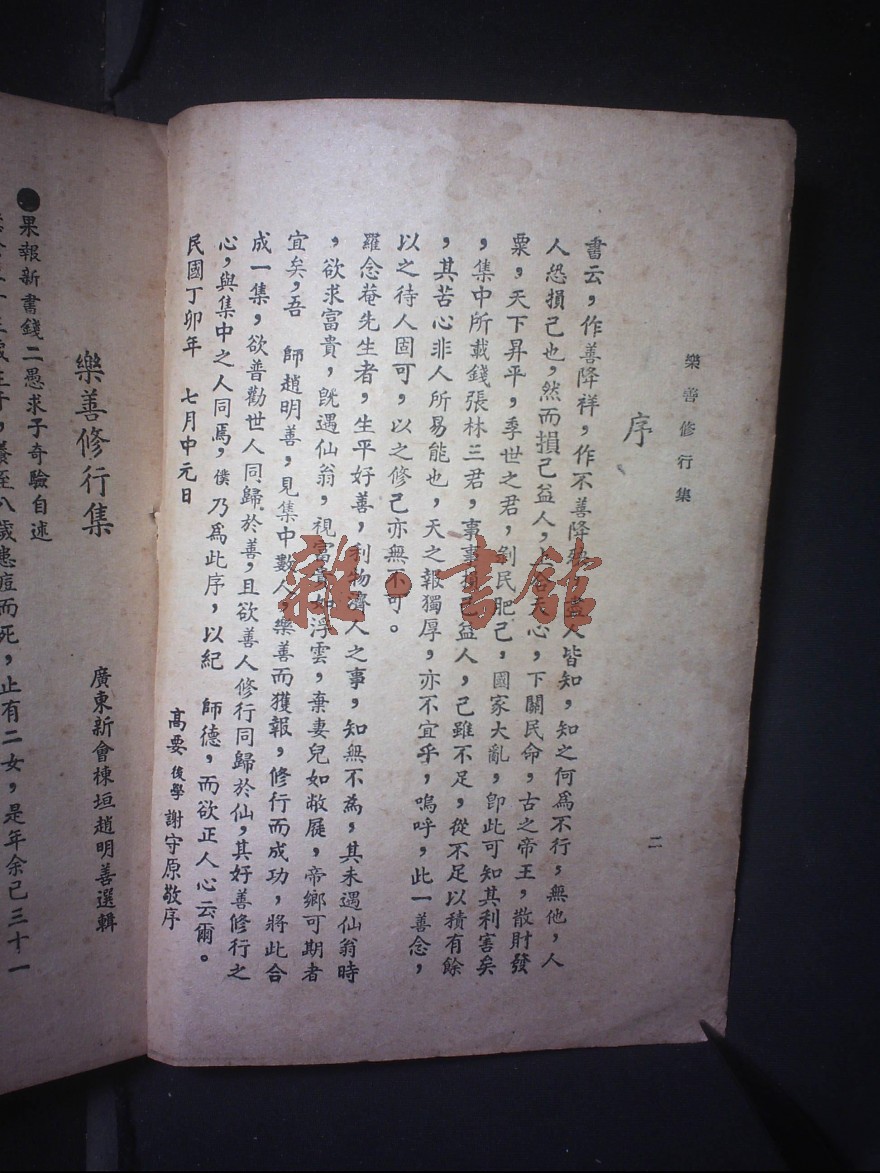 樂善修行集
二
序
書云，作善降祥，作不善降殃，盡人皆知，知之何爲不行，無他，人
人恐損己也，然而損己益人，上合天心，下關民命，古之帝王，散財發
粟，天下昇平，季世之君，剝民肥己，國家大亂，卽此可知其利害矣
，集中所載錢張林三君，事事損己益人，己雖不足，從不足以積有餘
，其苦心非人所易能也，天之報獨厚，亦不宜乎，嗚呼，此一善念，
以之待人固可，以之修己亦無不可。
羅念菴先生者，生平好善，利物濟人之事，知無不為，其未遇仙翁時
，欲求富貴，旣遇仙翁，視富貴如浮雲，棄妻兒如敝屣，帝鄉可期者
宜矣，吾　師趙明善，見集中數人，樂善而獲報，修行而成功，將此合
成一集，欲普勸世人同歸於善，且欲善人修行同歸於仙，其好善修行之
心，與集中之人同焉，僕乃爲此序，以紀　師德，而欲正人心云爾。
民國丁卯年　七月中元日
高要後學謝守原敬序
樂善修行集
廣東新會棟垣趙明善選輯
●果報新書錢二愚求子奇驗自述
歲生子，養至八歲患痘而死，止有二女，是年余已三十一
雜·書館